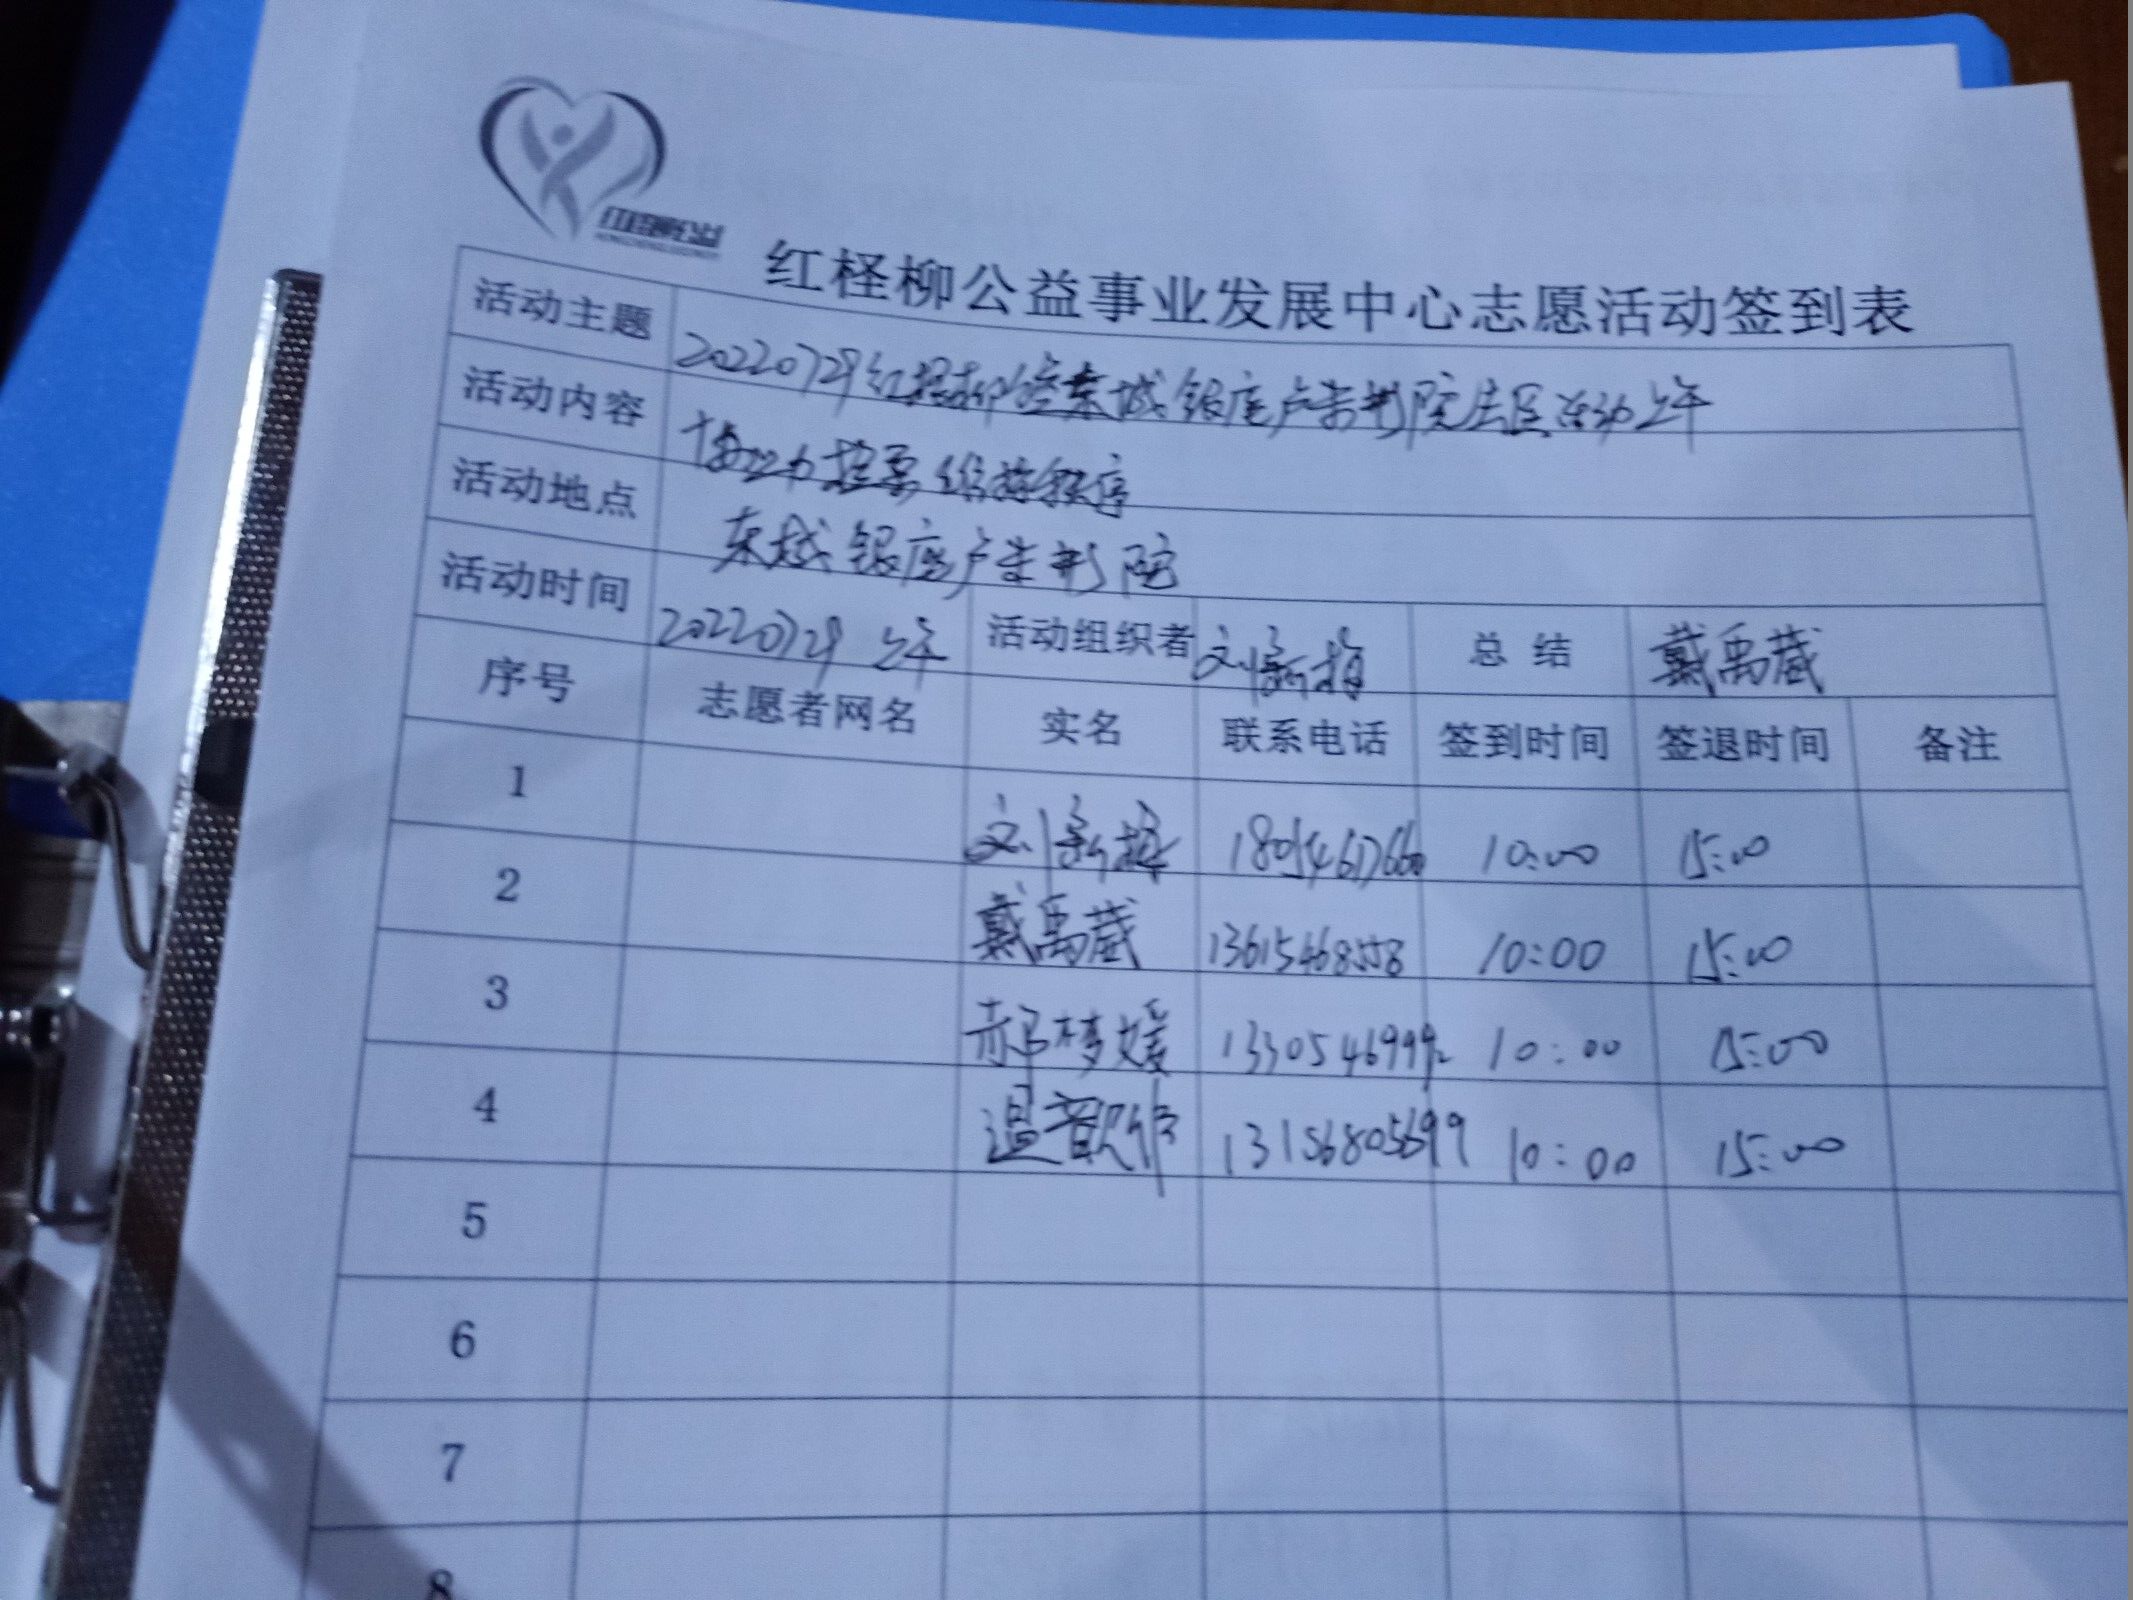 红柽柳公益
红柽柳公益事业发展中心志愿活动签到表
活动主题 20220729红柽柳 东城银座卢米影院 区活动上午
活动内容 协助检票 维持秩序
活动地点 东城银座卢米影院
活动时间 20220729 上午 活动组织者 刘新梅 总 结 戴禹葳
序号 志愿者网名 实名 联系电话 签到时间 签退时间 备注
1 刘新梅 18054617660 10:00 15:00
2 戴禹葳 13615468558 10:00 15:00
3 郝梦媛 13305469992 10:00 15:00
4 温 13156805699 10:00 15:00
5
6
7
8